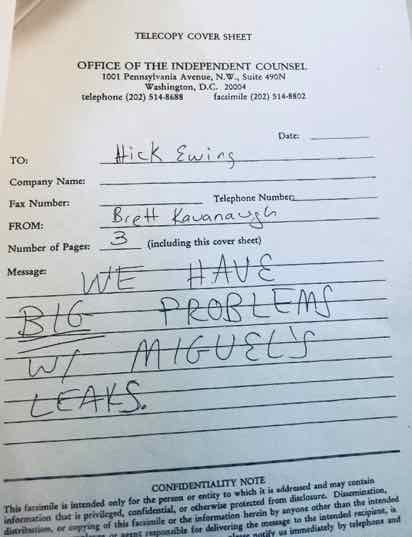 TELECOPY COVER SHEET
OFFICE OF THE INDEPENDENT COUNSEL
1001 Pennsylvania Avenue, N.W., Suite 490N
Washington, D.C. 20004
telephone (202) 514-8688 facsimile (202) 514-8802
Date:
TO: Hick Ewing
Company Name:
Fax Number: Telephone Number:
FROM: Brett Kavanaugh
Number of Pages: 3 (including this cover sheet)
Message: WE HAVE
BIG PROBLEMS
W/ MIGUEL'S
LEAKS.
CONFIDENTIALITY NOTE
This facsimile is intended only for the person or entity to which it is addressed and may contain
information that is privileged, confidential, or otherwise protected from disclosure. Dissemination,
distribution, or copying of this facsimile or the information herein by anyone other than the intended
or agent responsible for delivering the message to the intended recipient, is
please notify us immediately by telephone and